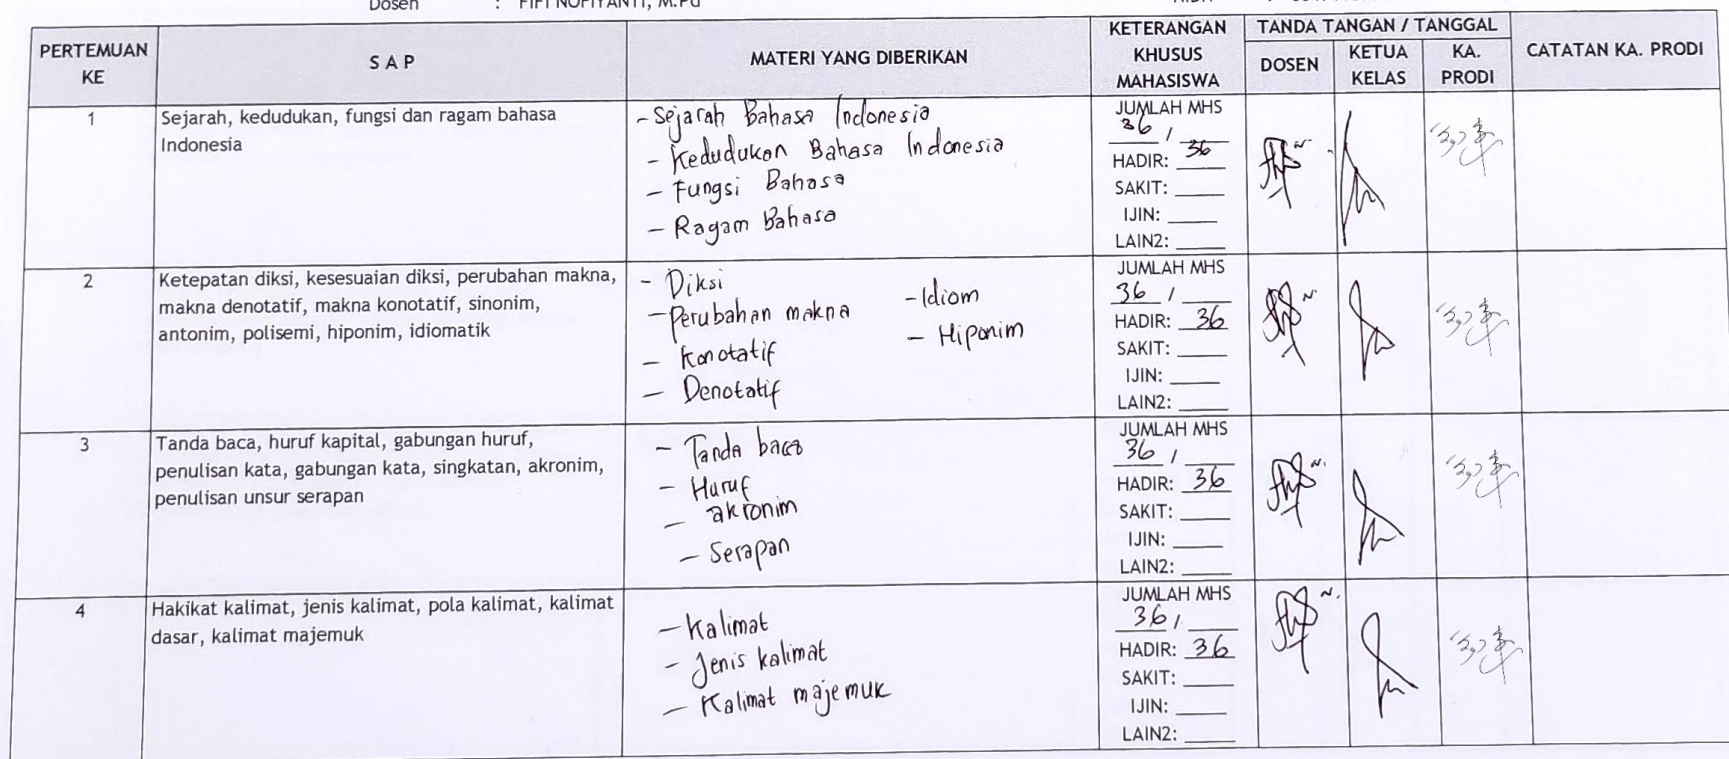 Dosen : FIFI NOFIYANTI, M.Pd
PERTEMUAN KE
S A P
MATERI YANG DIBERIKAN
KETERANGAN KHUSUS MAHASISWA
TANDA TANGAN / TANGGAL
DOSEN
KETUA KELAS
KA. PRODI
CATATAN KA. PRODI
1
Sejarah, kedudukan, fungsi dan ragam bahasa
Indonesia
- Sejarah Bahasa Indonesia
- Kedudukan Bahasa Indonesia
- Fungsi Bahasa
- Ragam Bahasa
JUMLAH MHS
36 /
HADIR: 36
SAKIT:
IJIN:
LAIN2:
2
Ketepatan diksi, kesesuaian diksi, perubahan makna,
makna denotatif, makna konotatif, sinonim,
antonim, polisemi, hiponim, idiomatik
- Diksi
- Perubahan makna
- Konotatif
- Denotatif
- Idiom
- Hiponim
JUMLAH MHS
36 /
HADIR: 36
SAKIT:
IJIN:
LAIN2:
3
Tanda baca, huruf kapital, gabungan huruf,
penulisan kata, gabungan kata, singkatan, akronim,
penulisan unsur serapan
- Tanda baca
- Huruf
- akronim
- Serapan
JUMLAH MHS
36 /
HADIR: 36
SAKIT:
IJIN:
LAIN2:
4
Hakikat kalimat, jenis kalimat, pola kalimat, kalimat
dasar, kalimat majemuk
- Kalimat
- Jenis kalimat
- Kalimat majemuk
JUMLAH MHS
36 /
HADIR: 36
SAKIT:
IJIN:
LAIN2: